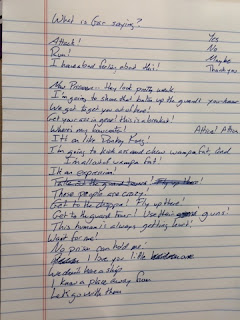 What is Gar saying?
Yes
Attack!
No
Run!
Maybe
I have a bad feeling about this!
Thank you.
New Prisoners - they look pretty weak
I'm going to share that butter up the guards
We got to get you out of here!
Get your ass in gear! this is a breakout!
Where's my bowcaster!
Attica! Attica!
It's on like Donkey Kong!
I'm going to kick ass and chew wampa fat, and
I'm all out of wampa fat!
It's an expression!
Take the guard tower! Fly up there!
These people are crazy!
Get to the choppa! Fly up there!
Get to the guard tower! Use their guns!
This human is always getting lost!
Wait for me!
No prison can hold me!
I love you little
We don't have a ship
I know a place away from
Let's go with them